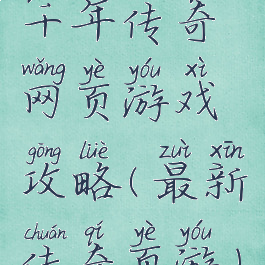 千年传奇
wǎng yè yóu xì
网页游戏
gōng lüè zuì xīn
攻略(最新
chuán qí yè yóu
传奇页游)